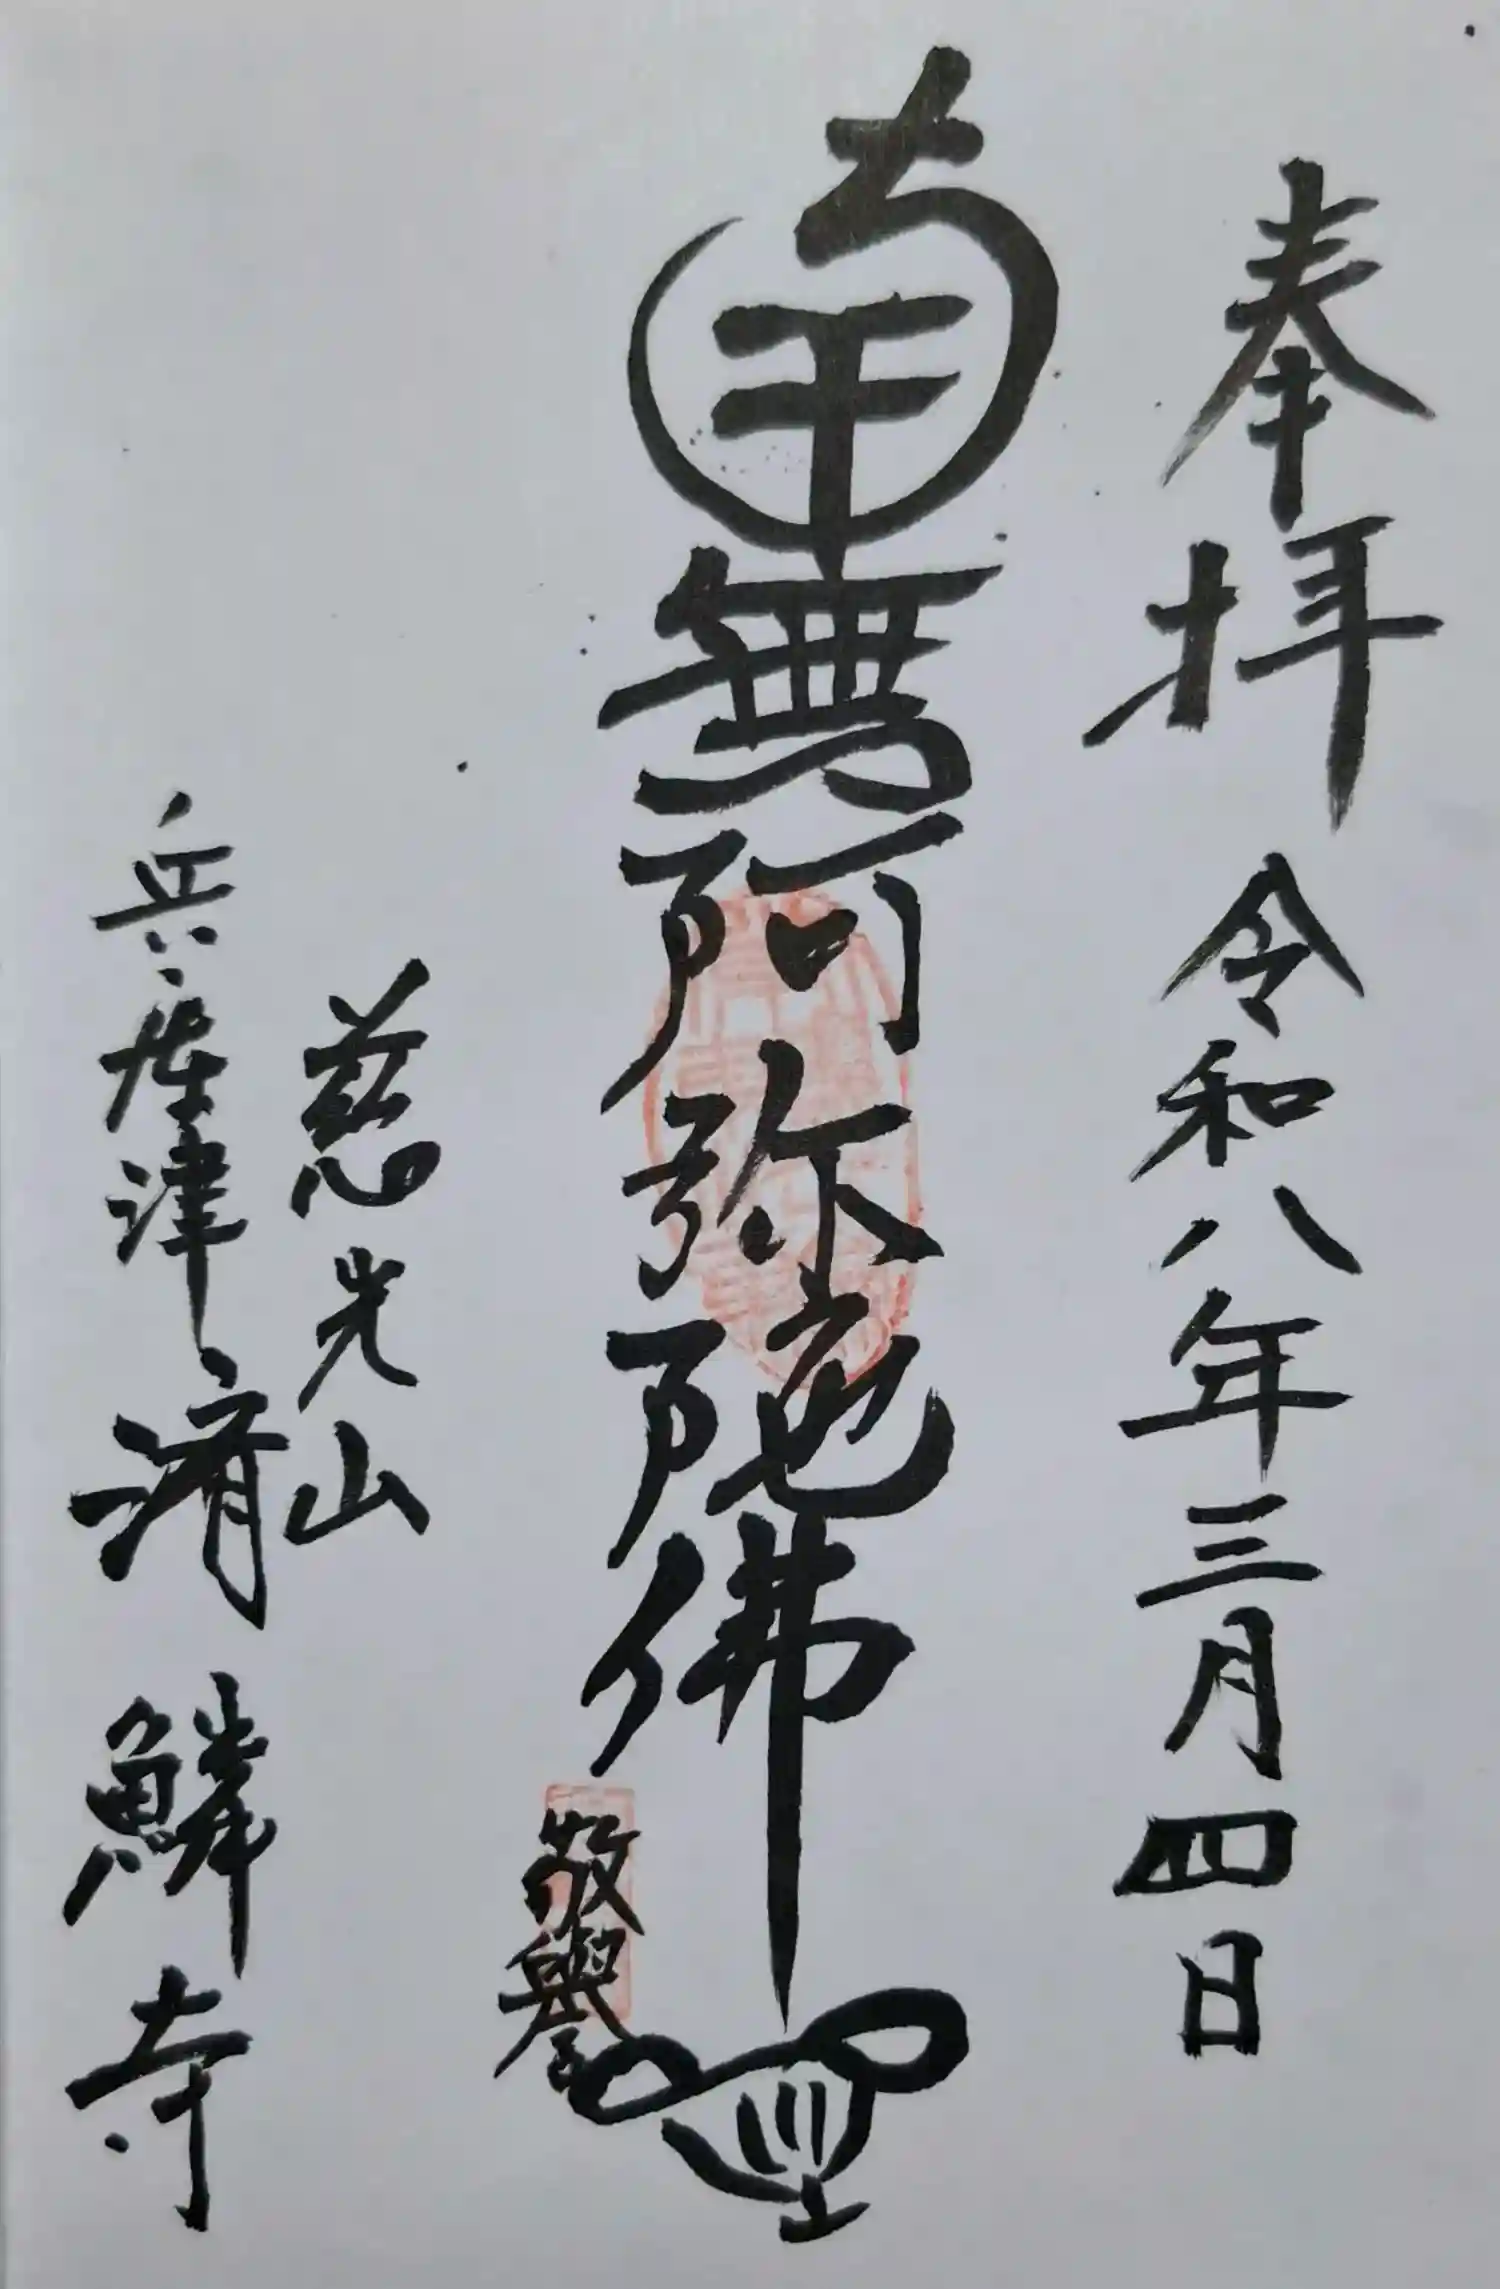 奉拝 令和八年三月四日
南無阿弥陀佛
敬譽
慈光山
兵庫津 済鱗寺